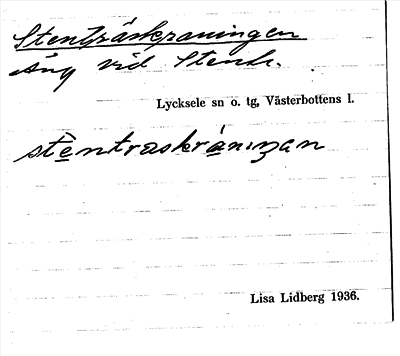 Stenträskraningen
Äng vid Stentr.
Lycksele sn o. tg, Västerbottens l.
stèntraskránıŋan
Lisa Lidberg 1936.